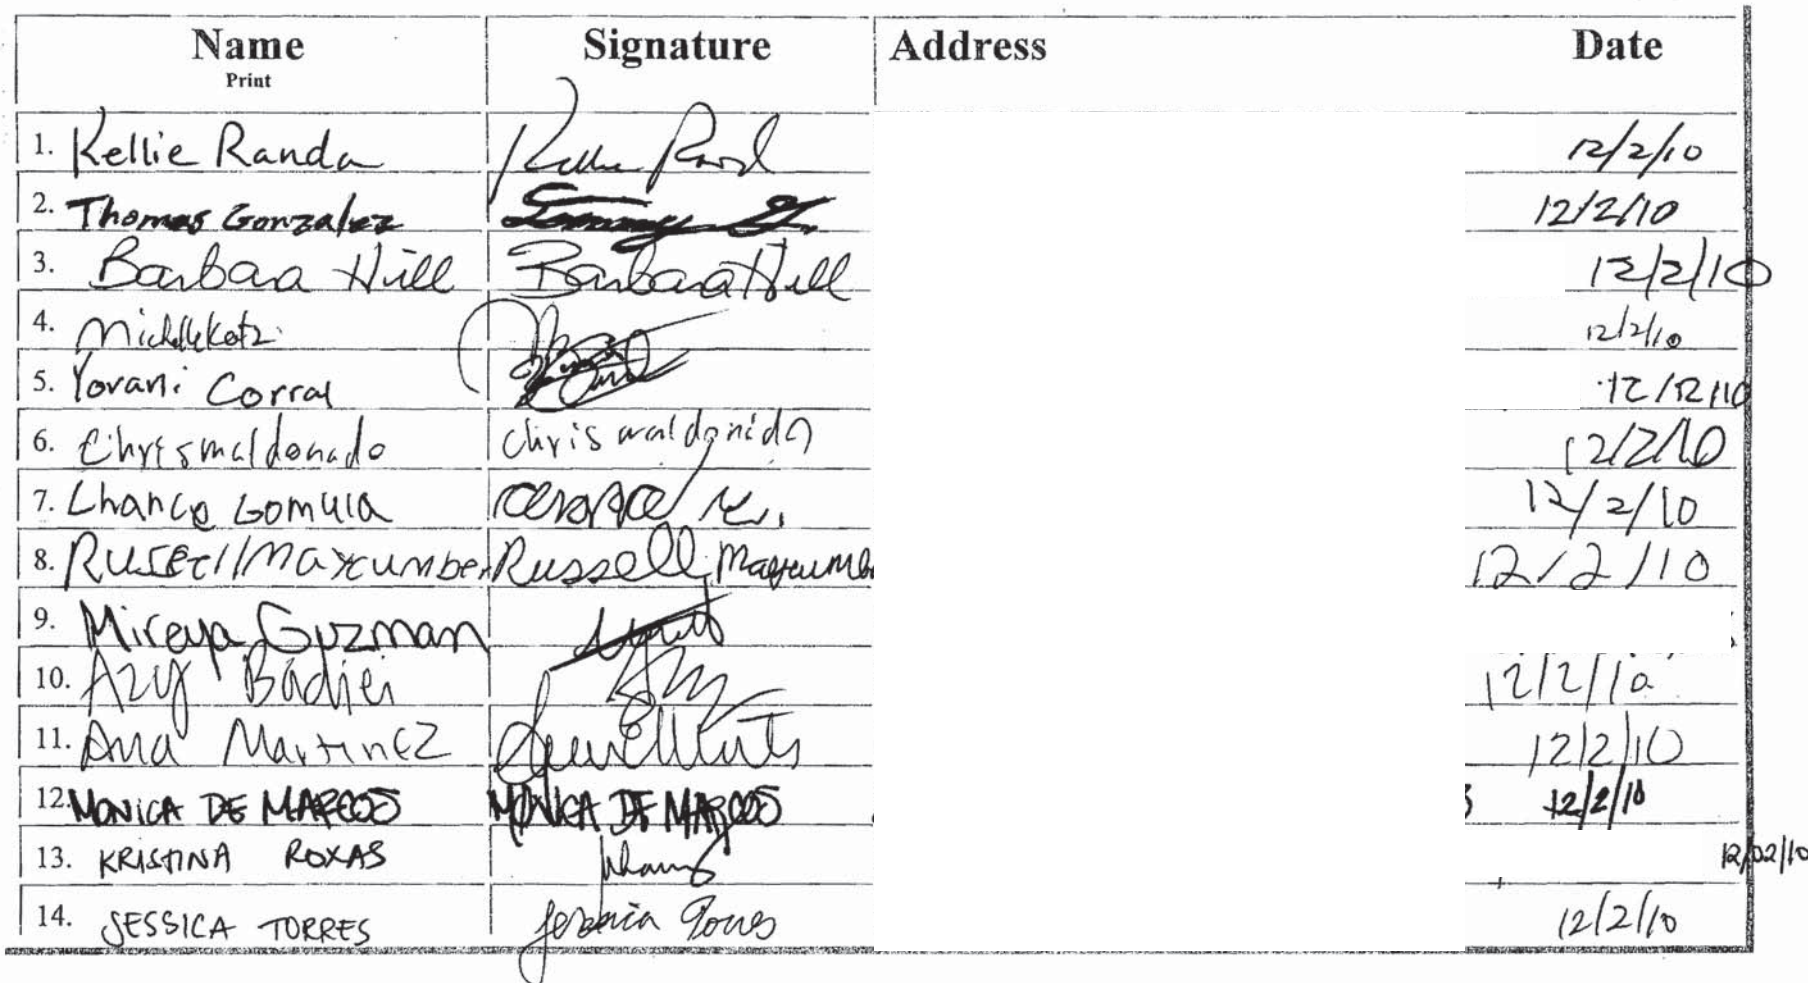 Name Signature Address Date
Print
1. Kellie Randa 12/2/10
2. Thomas Gonzalez Tommy G. 12/2/10
3. Barbara Hill Barbara Hill 12/2/10
4. Michelle Katz 12/2/10
5. Yovani Corral 12/12/10
6. Chris maldonado chris maldonido 12/2/10
7. Chance Gomula 12/2/10
8. Russell Maycumber Russell Maycumb 12/2/10
9. Mireya Guzman
10. Azy Badiei 12/2/10
11. Ana Martinez 12/2/10
12. MONICA DE MARCOS MONICA DE MARCOS 12/2/10
13. KRISTINA ROXAS 12/02/10
14. JESSICA TORRES Jessica Torres 12/2/10